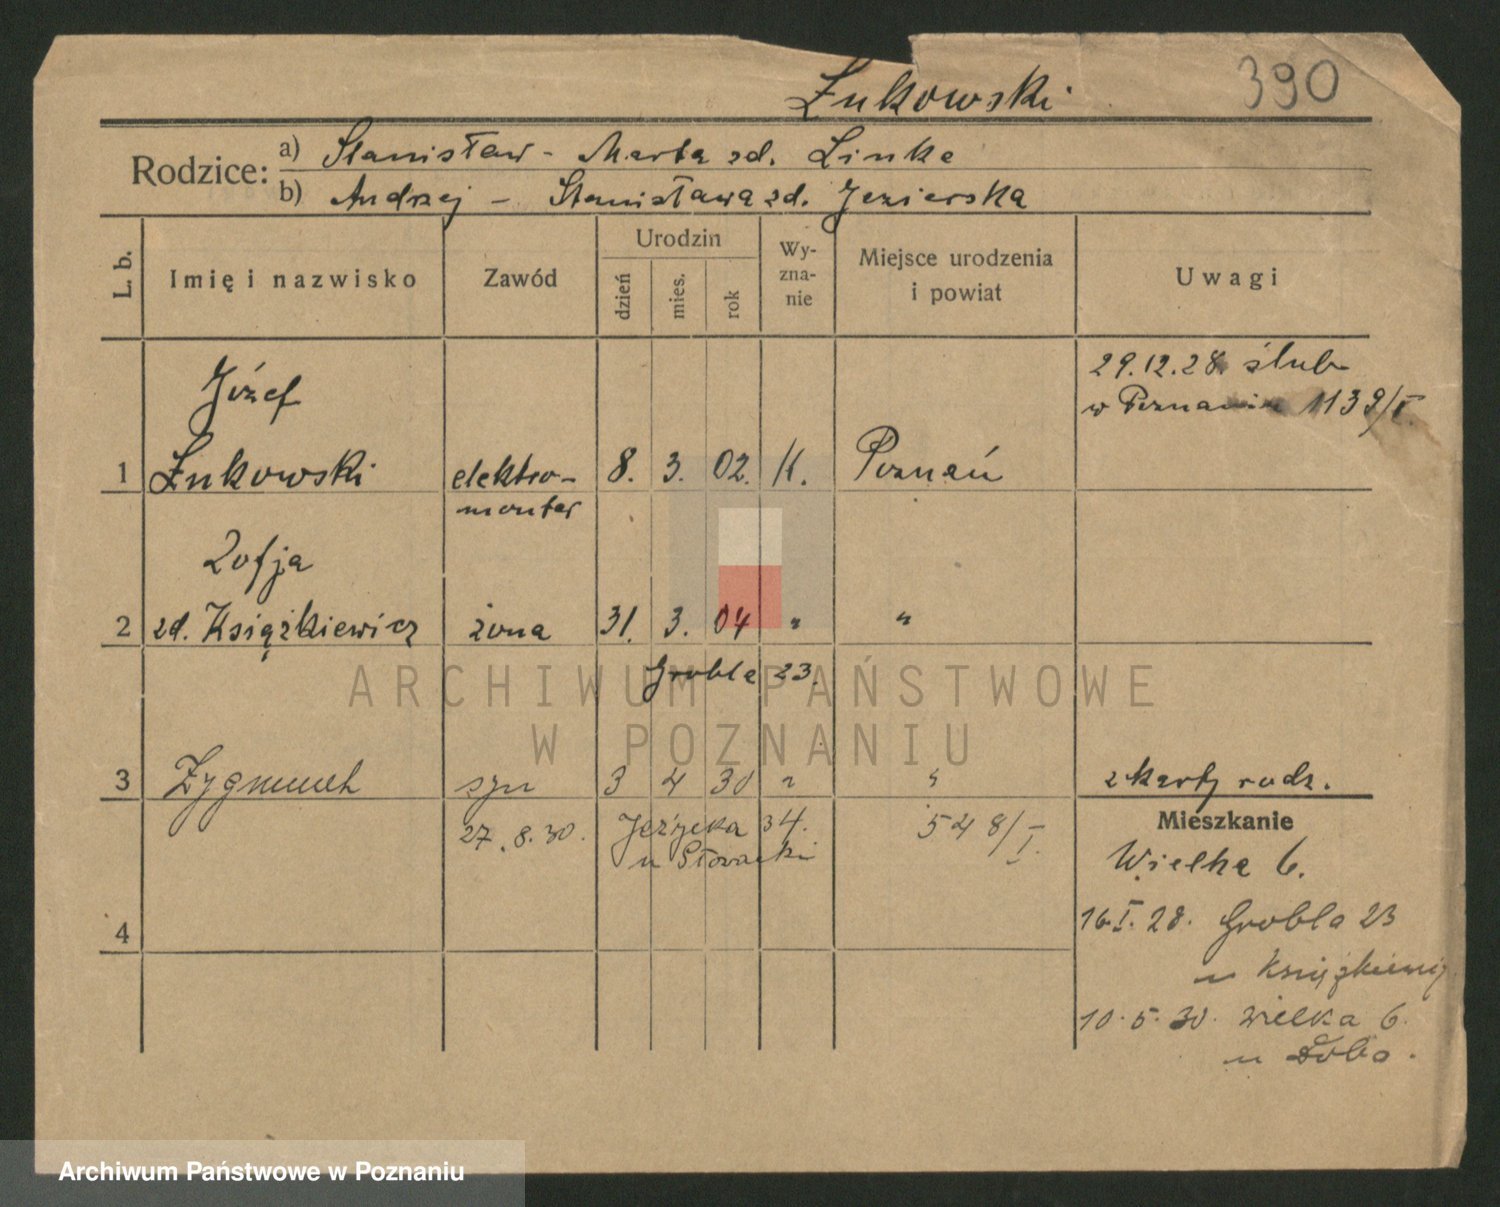 Żukowski 390
Rodzice: a) Stanisław - Marta zd. Linke
b) Andrzej - Stanisława zd. Jezierska
L. b. Imię i nazwisko Zawód Urodzin dzień mies. rok Wy-zna-nie Miejsce urodzenia i powiat Uwagi
29.12.28. ślub
w Poznaniu 1139/I.
Józef
1 Żukowski elektro- 8. 3. 02. K. Poznań
monter
Zofja
2 zd. Książkiewicz żona 31. 3. 04 " "
Grobla 23.
ARCHIWUM PAŃSTWOWE
W POZNANIU
3 Zygmunt syn 3 4 30 " " z karty rodz.
27.8.30. Jeżycka 34. 548/I.
u Słowacki
Mieszkanie
Wielka 6.
4 16.I.28. Grobla 23
u Książkiewicz
10.5.30. Wielka 6.
u
Archiwum Państwowe w Poznaniu